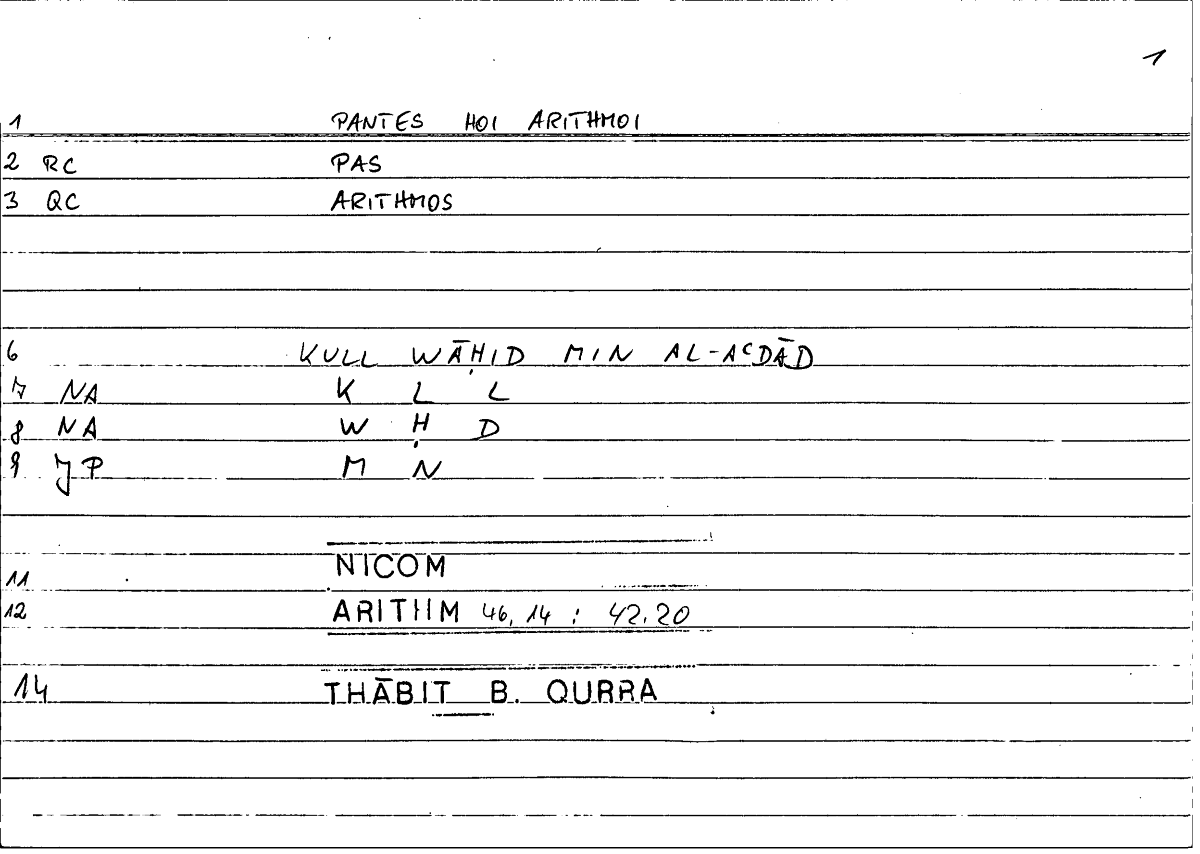 1
1 PANTES HOI ARITHMOI
2 RC PAS
3 QC ARITHMOS
6 KULL WĀḤID MIN AL-AʿDĀD
7 NA K L L
8 NA W Ḥ D
9 JP M N
11 NICOM
12 ARITHM 46, 14 : 42.20
14 THĀBIT B. QURRA